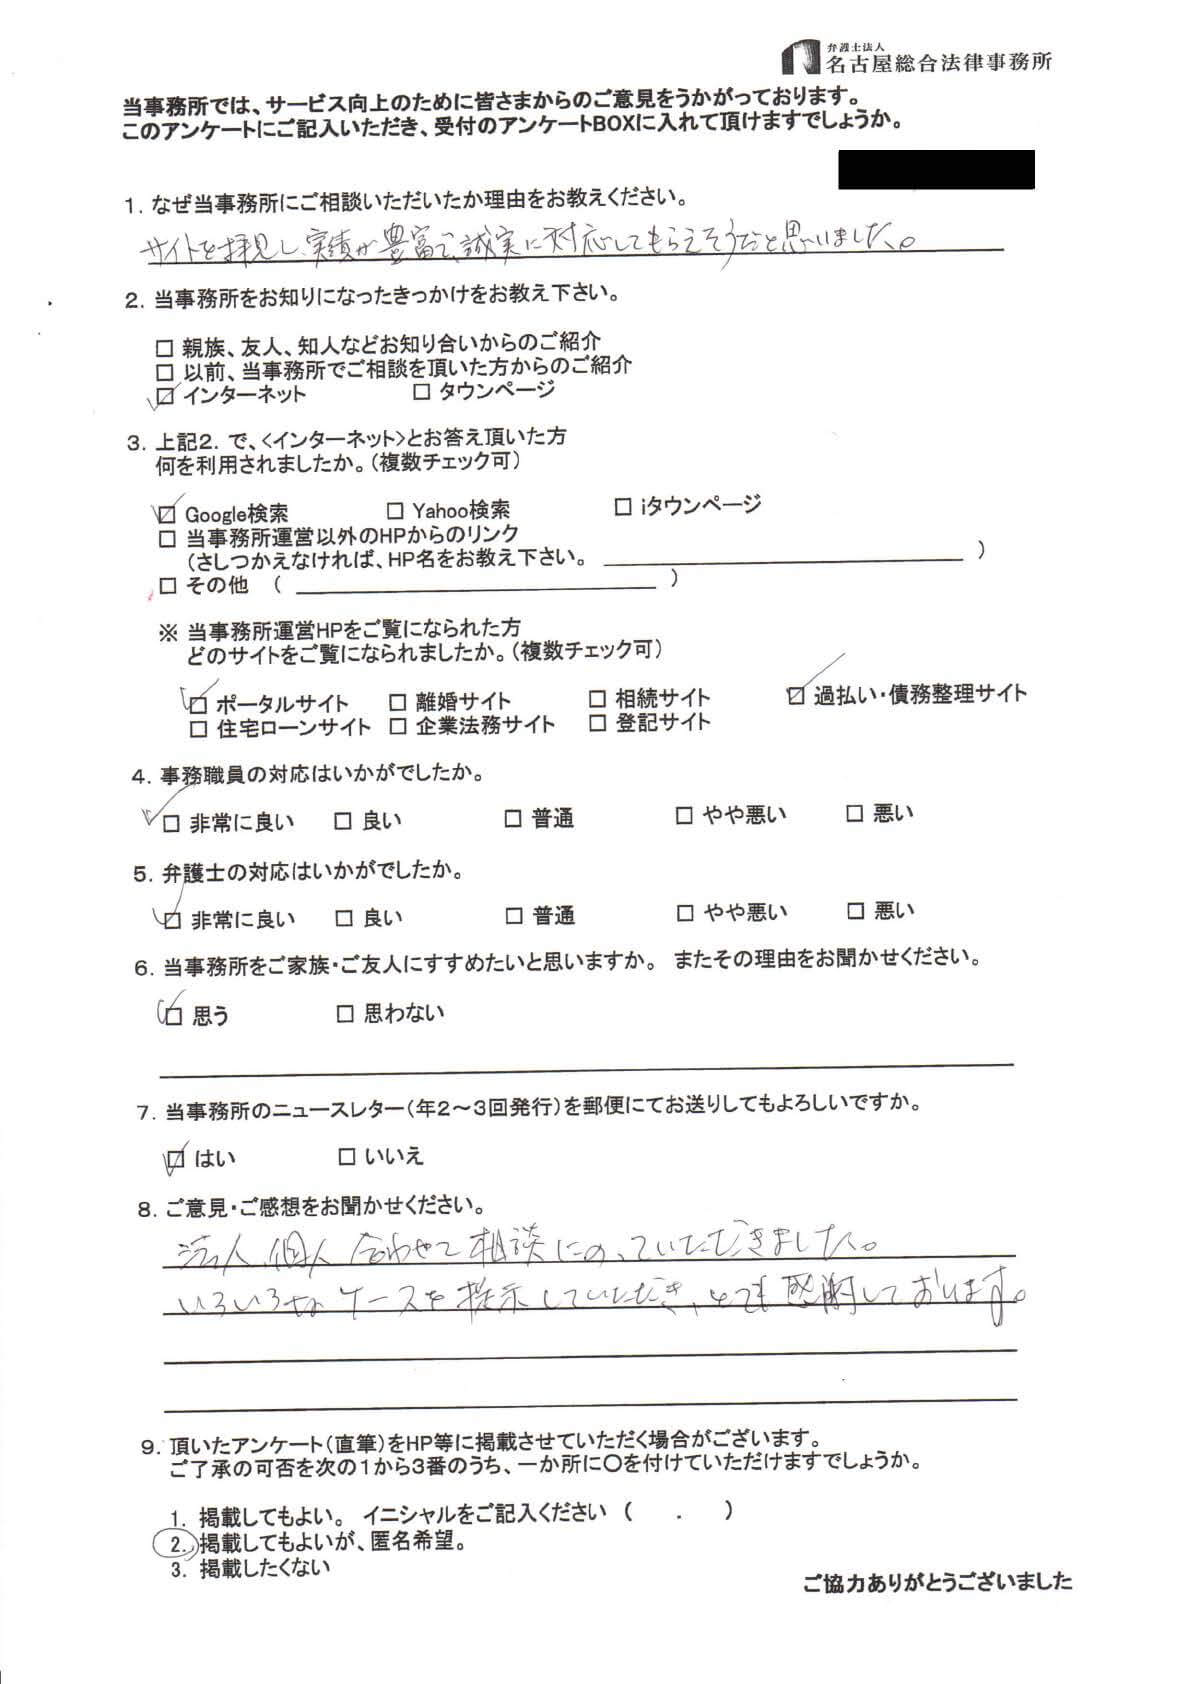 弁護士法人
名古屋総合法律事務所
当事務所では、サービス向上のために皆さまからのご意見をうかがっております。
このアンケートにご記入いただき、受付のアンケートBOXに入れて頂けますでしょうか。
1. なぜ当事務所にご相談いただいたか理由をお教えください。
サイトを拝見し、実績が豊富で、誠実に対応してもらえそうだと思いました。
2. 当事務所をお知りになったきっかけをお教え下さい。
□ 親族、友人、知人などお知り合いからのご紹介
□ 以前、当事務所でご相談を頂いた方からのご紹介
☑ インターネット □ タウンページ
3. 上記2. で、<インターネット>とお答え頂いた方
何を利用されましたか。(複数チェック可)
☑ Google検索 □ Yahoo検索 □ iタウンページ
□ 当事務所運営以外のHPからのリンク
(さしつかえなければ、HP名をお教え下さい。 )
□ その他 ( )
※ 当事務所運営HPをご覧になられた方
どのサイトをご覧になられましたか。(複数チェック可)
☑ ポータルサイト □ 離婚サイト □ 相続サイト ☑ 過払い・債務整理サイト
□ 住宅ローンサイト □ 企業法務サイト □ 登記サイト
4. 事務職員の対応はいかがでしたか。
☑ 非常に良い □ 良い □ 普通 □ やや悪い □ 悪い
5. 弁護士の対応はいかがでしたか。
☑ 非常に良い □ 良い □ 普通 □ やや悪い □ 悪い
6. 当事務所をご家族・ご友人にすすめたいと思いますか。 またその理由をお聞かせください。
☑ 思う □ 思わない
7. 当事務所のニュースレター(年2～3回発行)を郵便にてお送りしてもよろしいですか。
☑ はい □ いいえ
8. ご意見・ご感想をお聞かせください。
法人、個人 合わせて 相談にのっていただきました。
いろいろなケースを提示していただき、とても感謝しております。
9. 頂いたアンケート(直筆)をHP等に掲載させていただく場合がございます。
ご了承の可否を次の1から3番のうち、一か所に○を付けていただけますでしょうか。
1. 掲載してもよい。 イニシャルをご記入ください ( . )
2. 掲載してもよいが、匿名希望。
3. 掲載したくない
ご協力ありがとうございました